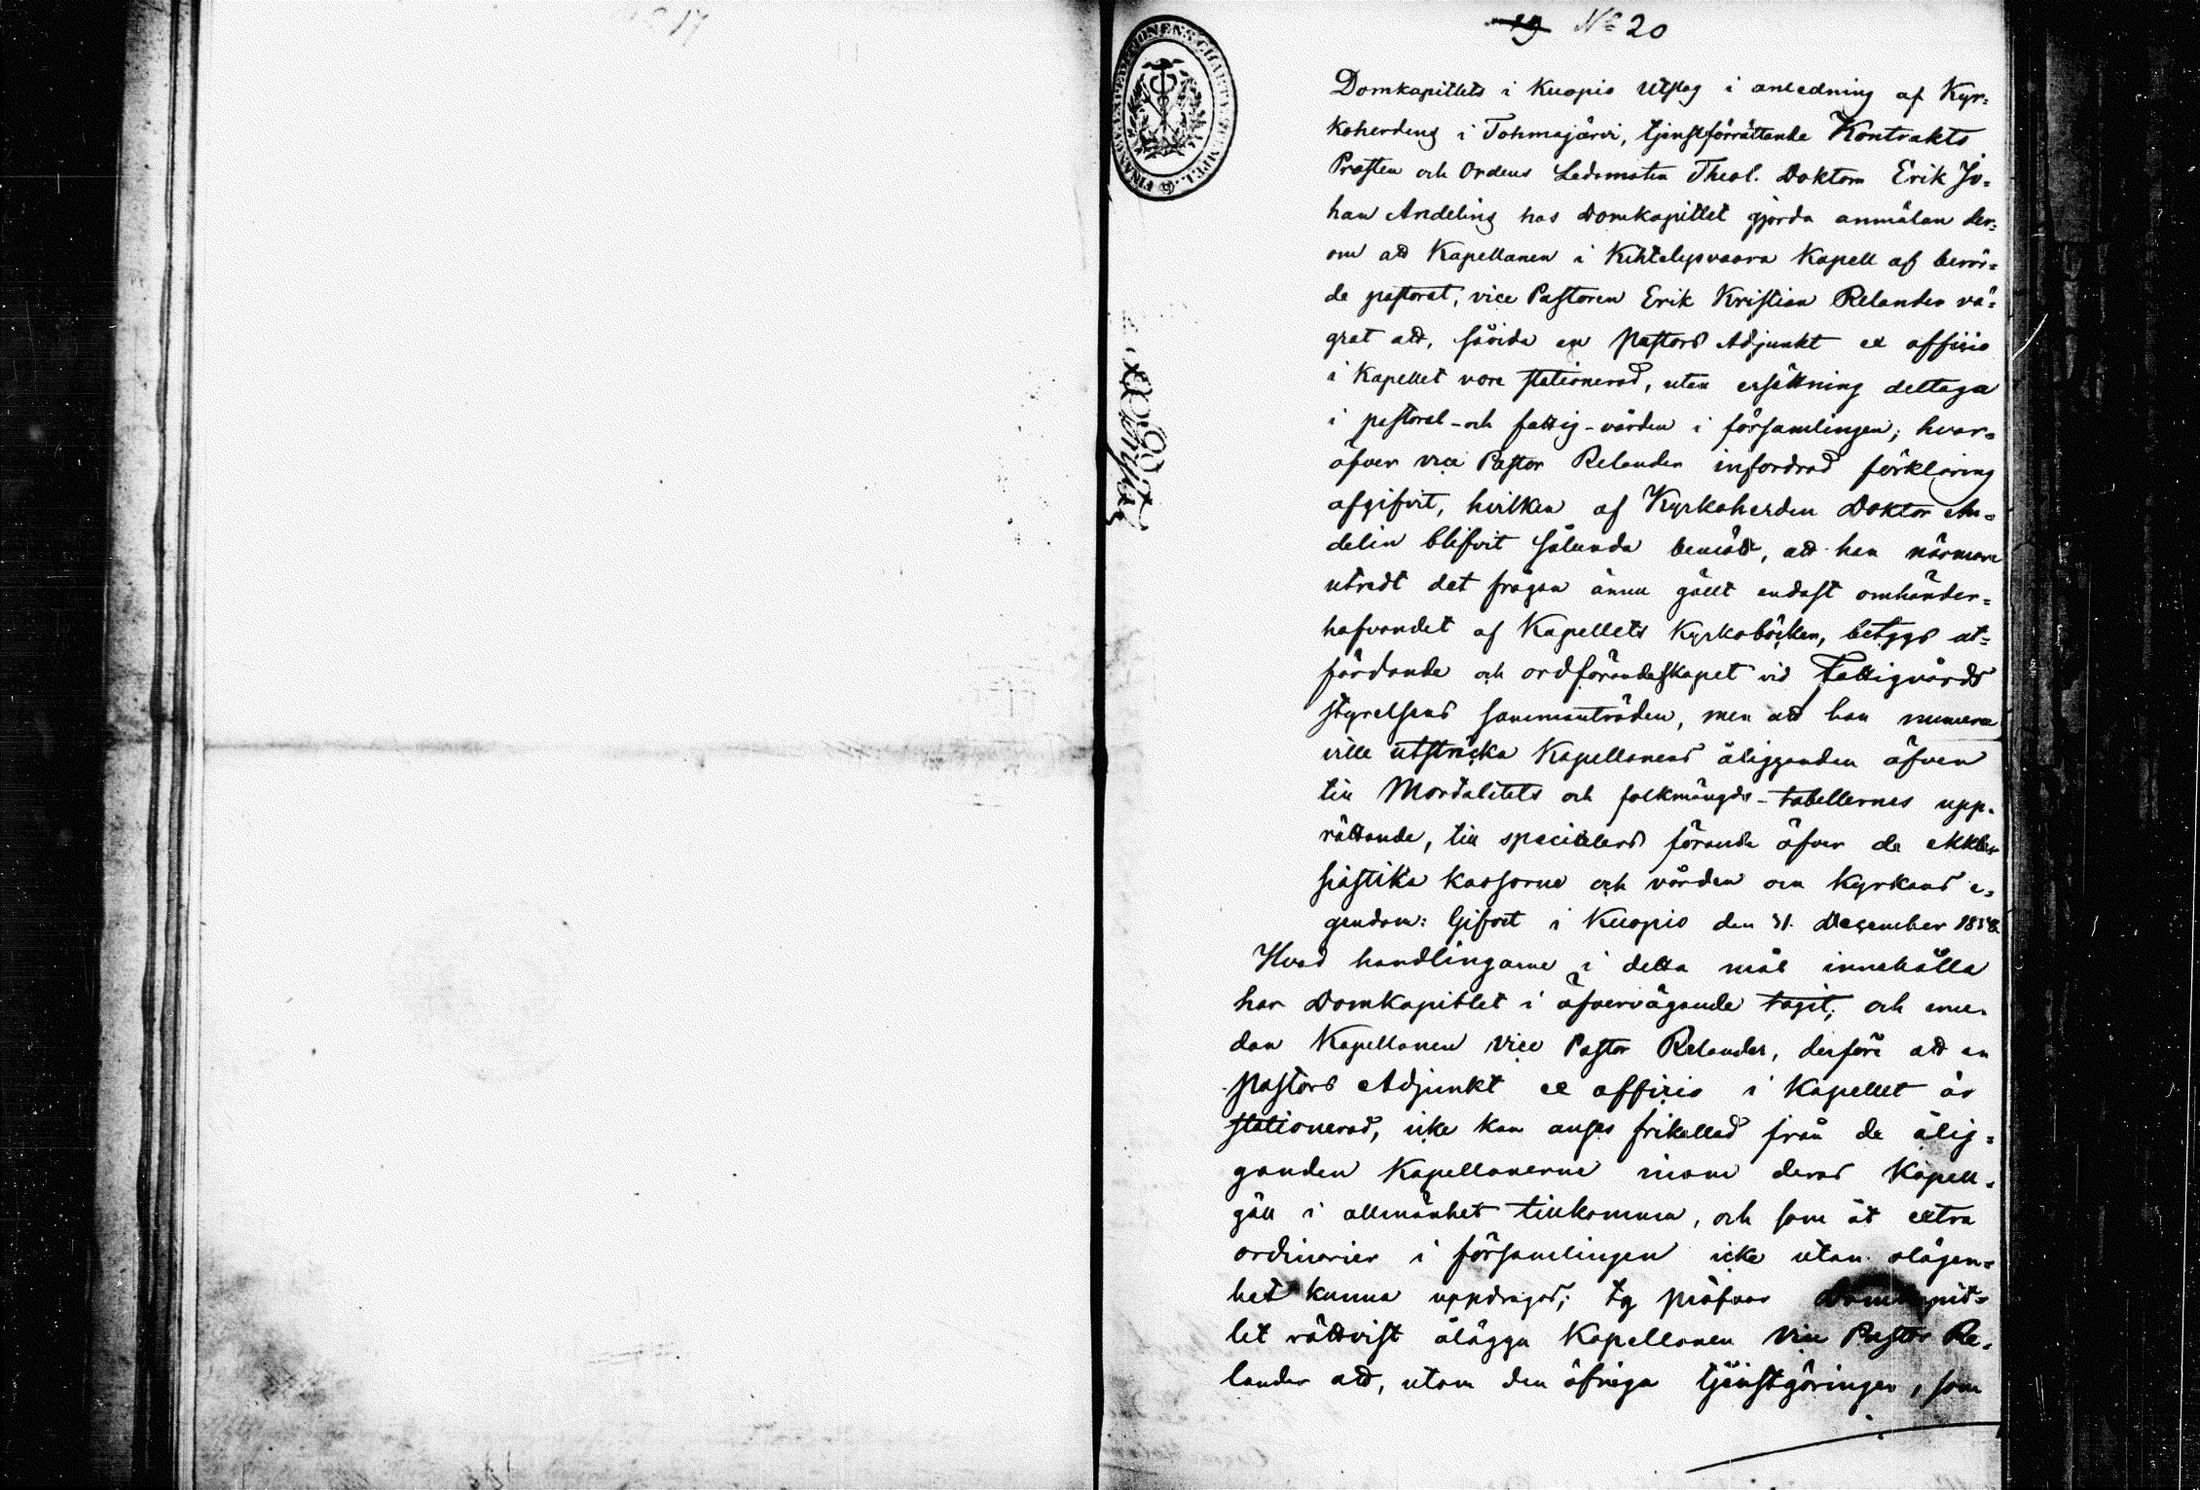 19 No 20
Domkapitlets i Kuopio Utslag i anledning af Kyr=
koherdens i Tohmajärvi, tjenstförrättande Kontrakts
Prosten och Ordens Ledamoten Theol. Doktorn Erik Jo=
han Andelins hos Domkapitlet gjorda anmälan der=
om att Kapellanen i Kihtelysvaara Kapell af berör=
de pastorat, vice Pastoren Erik Kristian Relander vä=
grat att, såvida en Pastors Adjunkt ex officio
i Kapellet vore stationerad, utan ersättning deltaga
i pastoral- och fattig-vården i församlingen; hvar=
öfver vice Pastor Relander infordrad förklaring
afgifvit, hvilken af Kyrkoherden Doktor An=
delin blifvit sålunda bemött, att han närmare
utredt det frågan ännu gällt endast omhänder=
hafvandet af Kapellets Kyrkoböcker, betygs ut=
färdande och ordförandeskapet vid Fattigvårds
styrelsens sammanträden, men att han numera
ville utsträcka Kapellanens åligganden äfven
till Mortalitets och folkmängds-tabellernes upp=
rättande, till specialers förande öfver de ekkle=
siastika kassorne och vården om kyrkans e=
gendom: Gifvet i Kuopio den 31. December 1858.
Hvad handlingarne i detta mål innehålla
har Domkapitlet i öfvervägande tagit; och eme=
dan Kapellanen vice Pastor Relander, derföre att en
Pastors Adjunkt ex officio i Kapellet är
stationerad, icke kan anses frikallad från de ålig=
ganden Kapellanerne inom deras Kapell=
gäll i allmänhet tillkomma, och som åt extra
ordinarier i församlingen icke utan olägen=
het kunna uppdragas; ty pröfvar Domkapit=
let rättvist ålägga Kapellanen vice Pastor Re=
lander att, utom den öfriga tjenstgöringen, som